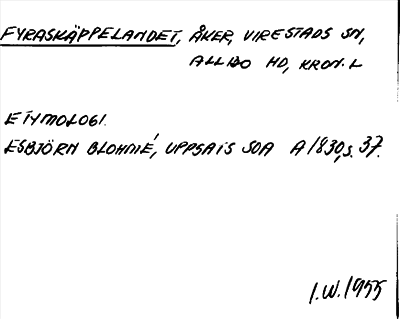 FYRASKÄPPELANDET, ÅKER, VIRESTADS SN,
ALLBO HD, KRON. L
ETYMOLOGI.
ESBJÖRN BLOHMÉ, UPPSATS SOA A 1830, S. 37.
I.W. 1955